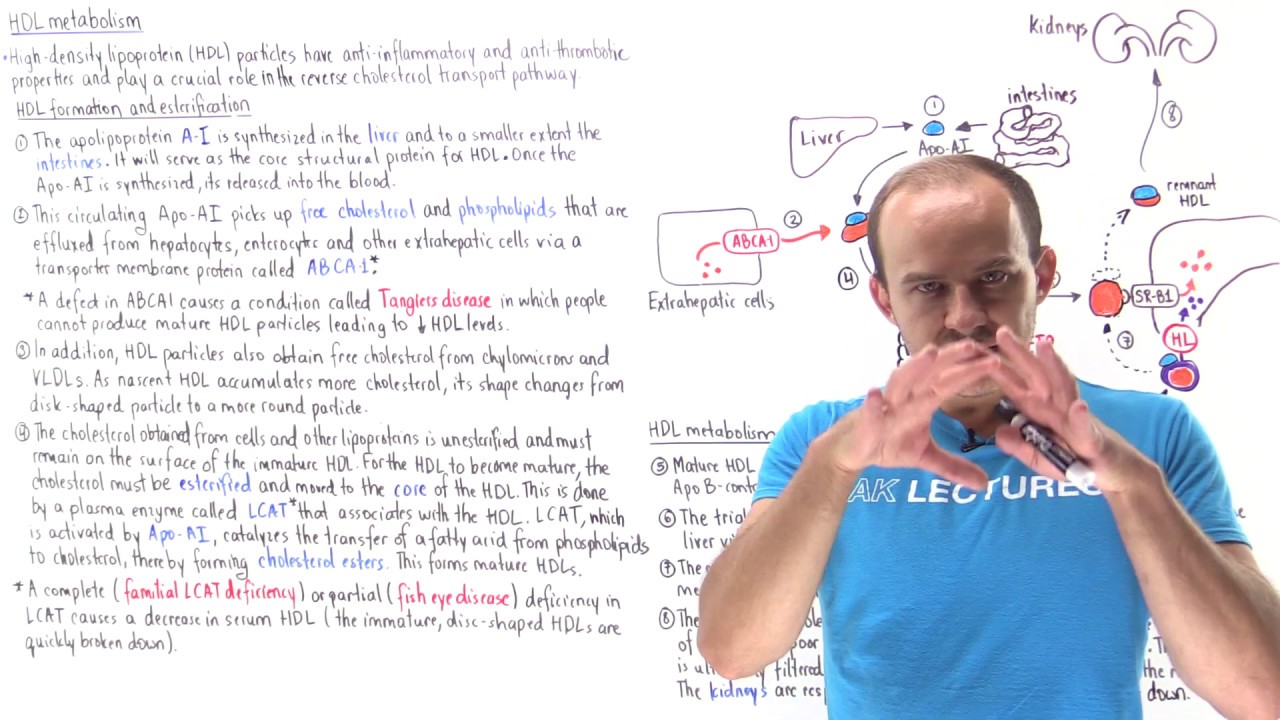 HDL metabolism
•High-density lipoprotein (HDL) particles have anti-inflammatory and anti-thrombotic
properties and play a crucial role in the reverse cholesterol transport pathway
HDL formation and esterification
① The apolipoprotein A-I is synthesized in the liver and to a smaller extent the
intestines. It will serve as the core structural protein for HDL. Once the
Apo-AI is synthesized, its released into the blood.
② This circulating Apo-AI picks up free cholesterol and phospholipids that are
effluxed from hepatocytes, enterocytes and other extrahepatic cells via a
transporter membrane protein called ABCA1.*
*A defect in ABCA1 causes a condition called Tangiers disease in which people
cannot produce mature HDL particles leading to ↓ HDL levels.
③ In addition, HDL particles also obtain free cholesterol from chylomicrons and
VLDLs. As nascent HDL accumulates more cholesterol, its shape changes from
disk-shaped particle to a more round particle.
④ The cholesterol obtained from cells and other lipoproteins is unesterified and must
remain on the surface of the immature HDL. For the HDL to become mature, the
cholesterol must be esterified and moved to the core of the HDL. This is done
by a plasma enzyme called LCAT* that associates with the HDL. LCAT, which
is activated by Apo-AI, catalyzes the transfer of a fatty acid from phospholipids
to cholesterol, thereby forming cholesterol esters. This forms mature HDLs.
* A complete (familial LCAT deficiency) or partial (fish eye disease) deficiency in
LCAT causes a decrease in serum HDL (the immature, disc-shaped HDLs are
quickly broken down).
Kidneys
⑧
①
intestines
Liver
Apo-AI
remnant
HDL
②
ABCA1
④
Extrahepatic cells
SR-B1
⑦
HL
HDL metabolism
⑤ Mature HDL
Apo B-cont
⑥ The
liver
⑦ The
⑧ The
of
is filtered the
The kidneys are down.
AK LECTURES